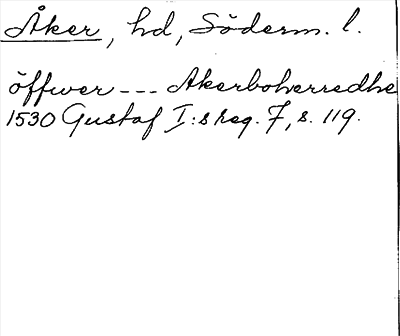 Åker, hd, Söderm. l.
öffwer --- Akerboherredhe
1530 Gustaf I:s reg. 7, s. 119.